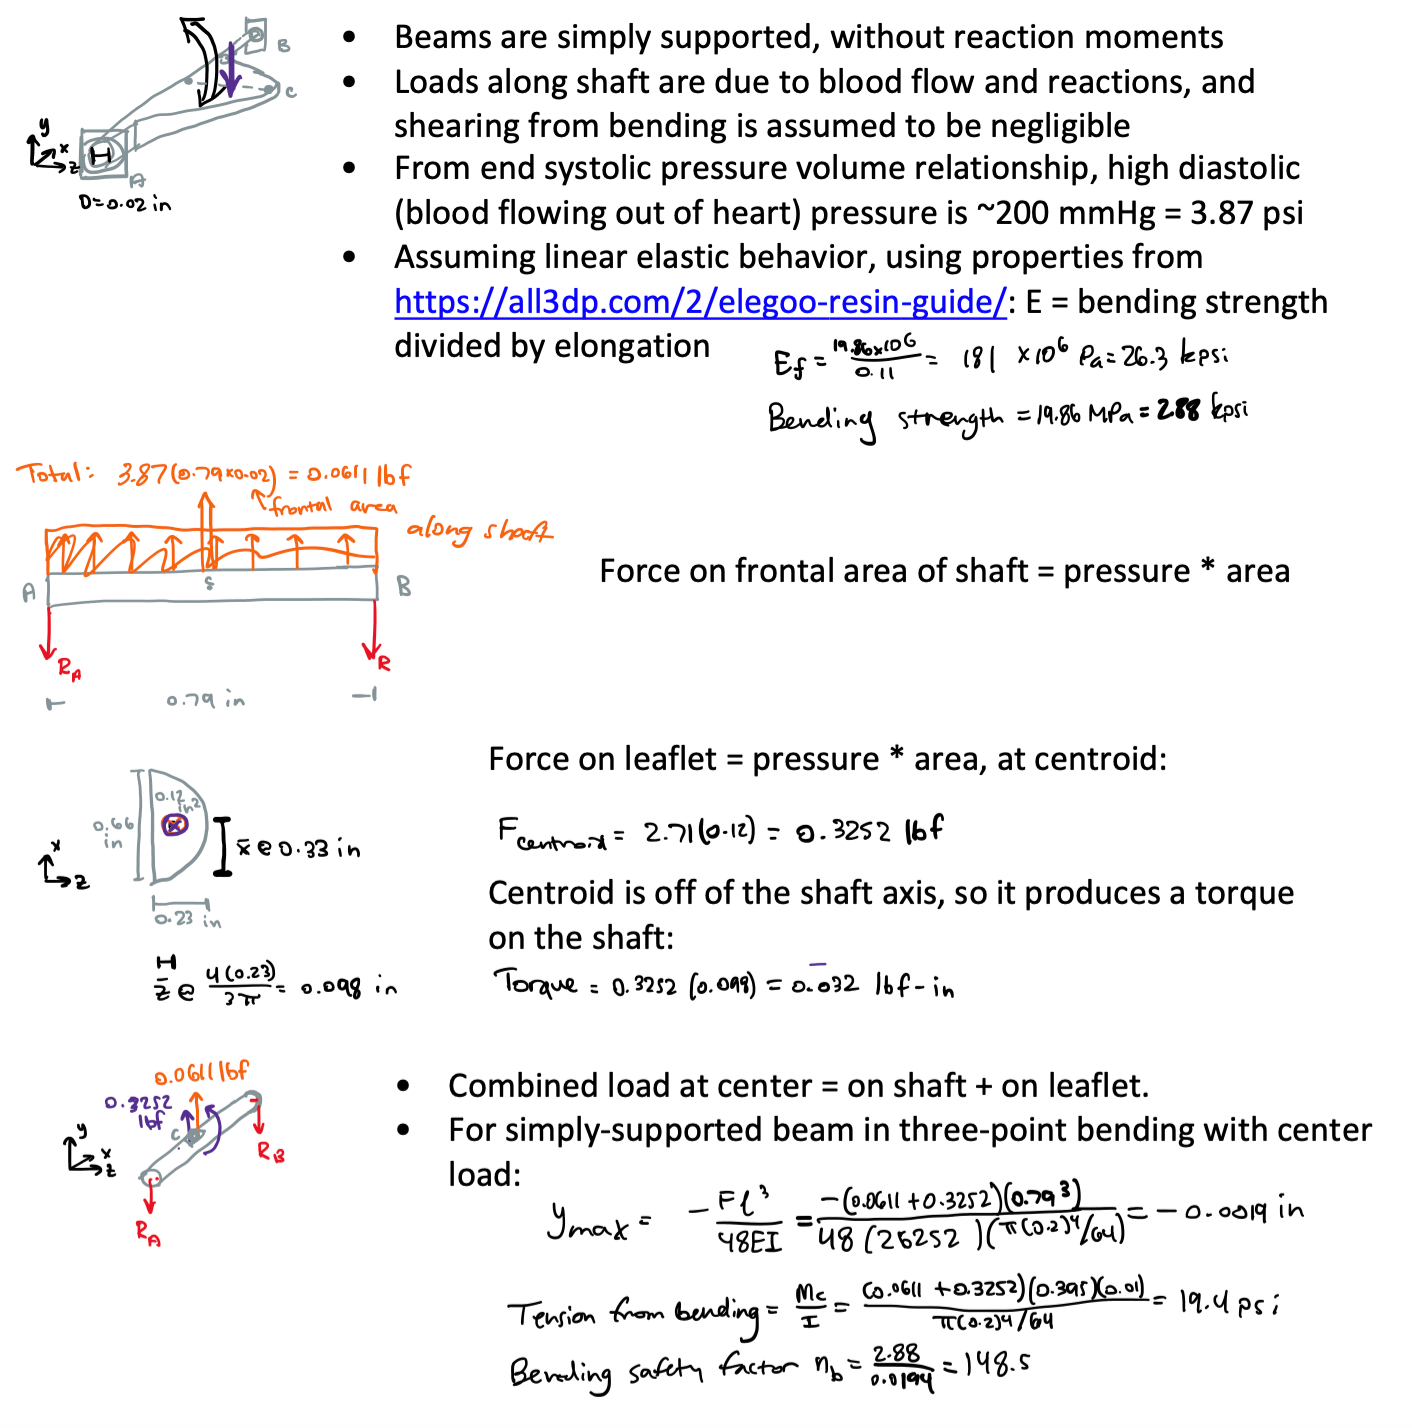 • Beams are simply supported, without reaction moments
• Loads along shaft are due to blood flow and reactions, and
shearing from bending is assumed to be negligible
• From end systolic pressure volume relationship, high diastolic
(blood flowing out of heart) pressure is ~200 mmHg = 3.87 psi
• Assuming linear elastic behavior, using properties from
https://all3dp.com/2/elegoo-resin-guide/: E = bending strength
divided by elongation
B
C
y
x
z
H
A
D=0.02 in
Ef = 19.86x10^6 / 0.11 = 181 x10^6 Pa = 26.3 kpsi
Bending strength = 19.86 MPa = 2.88 kpsi
Total: 3.87(0.79x0.02) = 0.0611 lbf
frontal area
along shaft
A
B
RA
R
0.79 in
Force on frontal area of shaft = pressure * area
Force on leaflet = pressure * area, at centroid:
0.12 in²
0.66 in
x
z
x̄ @ 0.33 in
0.23 in
Fcentroid = 2.71(0.12) = 0.3252 lbf
Centroid is off of the shaft axis, so it produces a torque
on the shaft:
z̄ @ 4(0.23)/3π = 0.098 in
Torque = 0.3252 (0.098) = 0.032 lbf-in
0.0611 lbf
0.3252 lbf
C
y
x
z
RB
RA
• Combined load at center = on shaft + on leaflet.
• For simply-supported beam in three-point bending with center
load:
ymax = -Fl³/48EI = -(0.0611+0.3252)(0.79³) / 48(26252)(π(0.2)⁴/64) = -0.0019 in
Tension from bending = Mc/I = (0.0611+0.3252)(0.395)(0.01) / π(0.2)4/64 = 19.4 psi
Bending safety factor nb = 2.88/0.0194 = 148.5